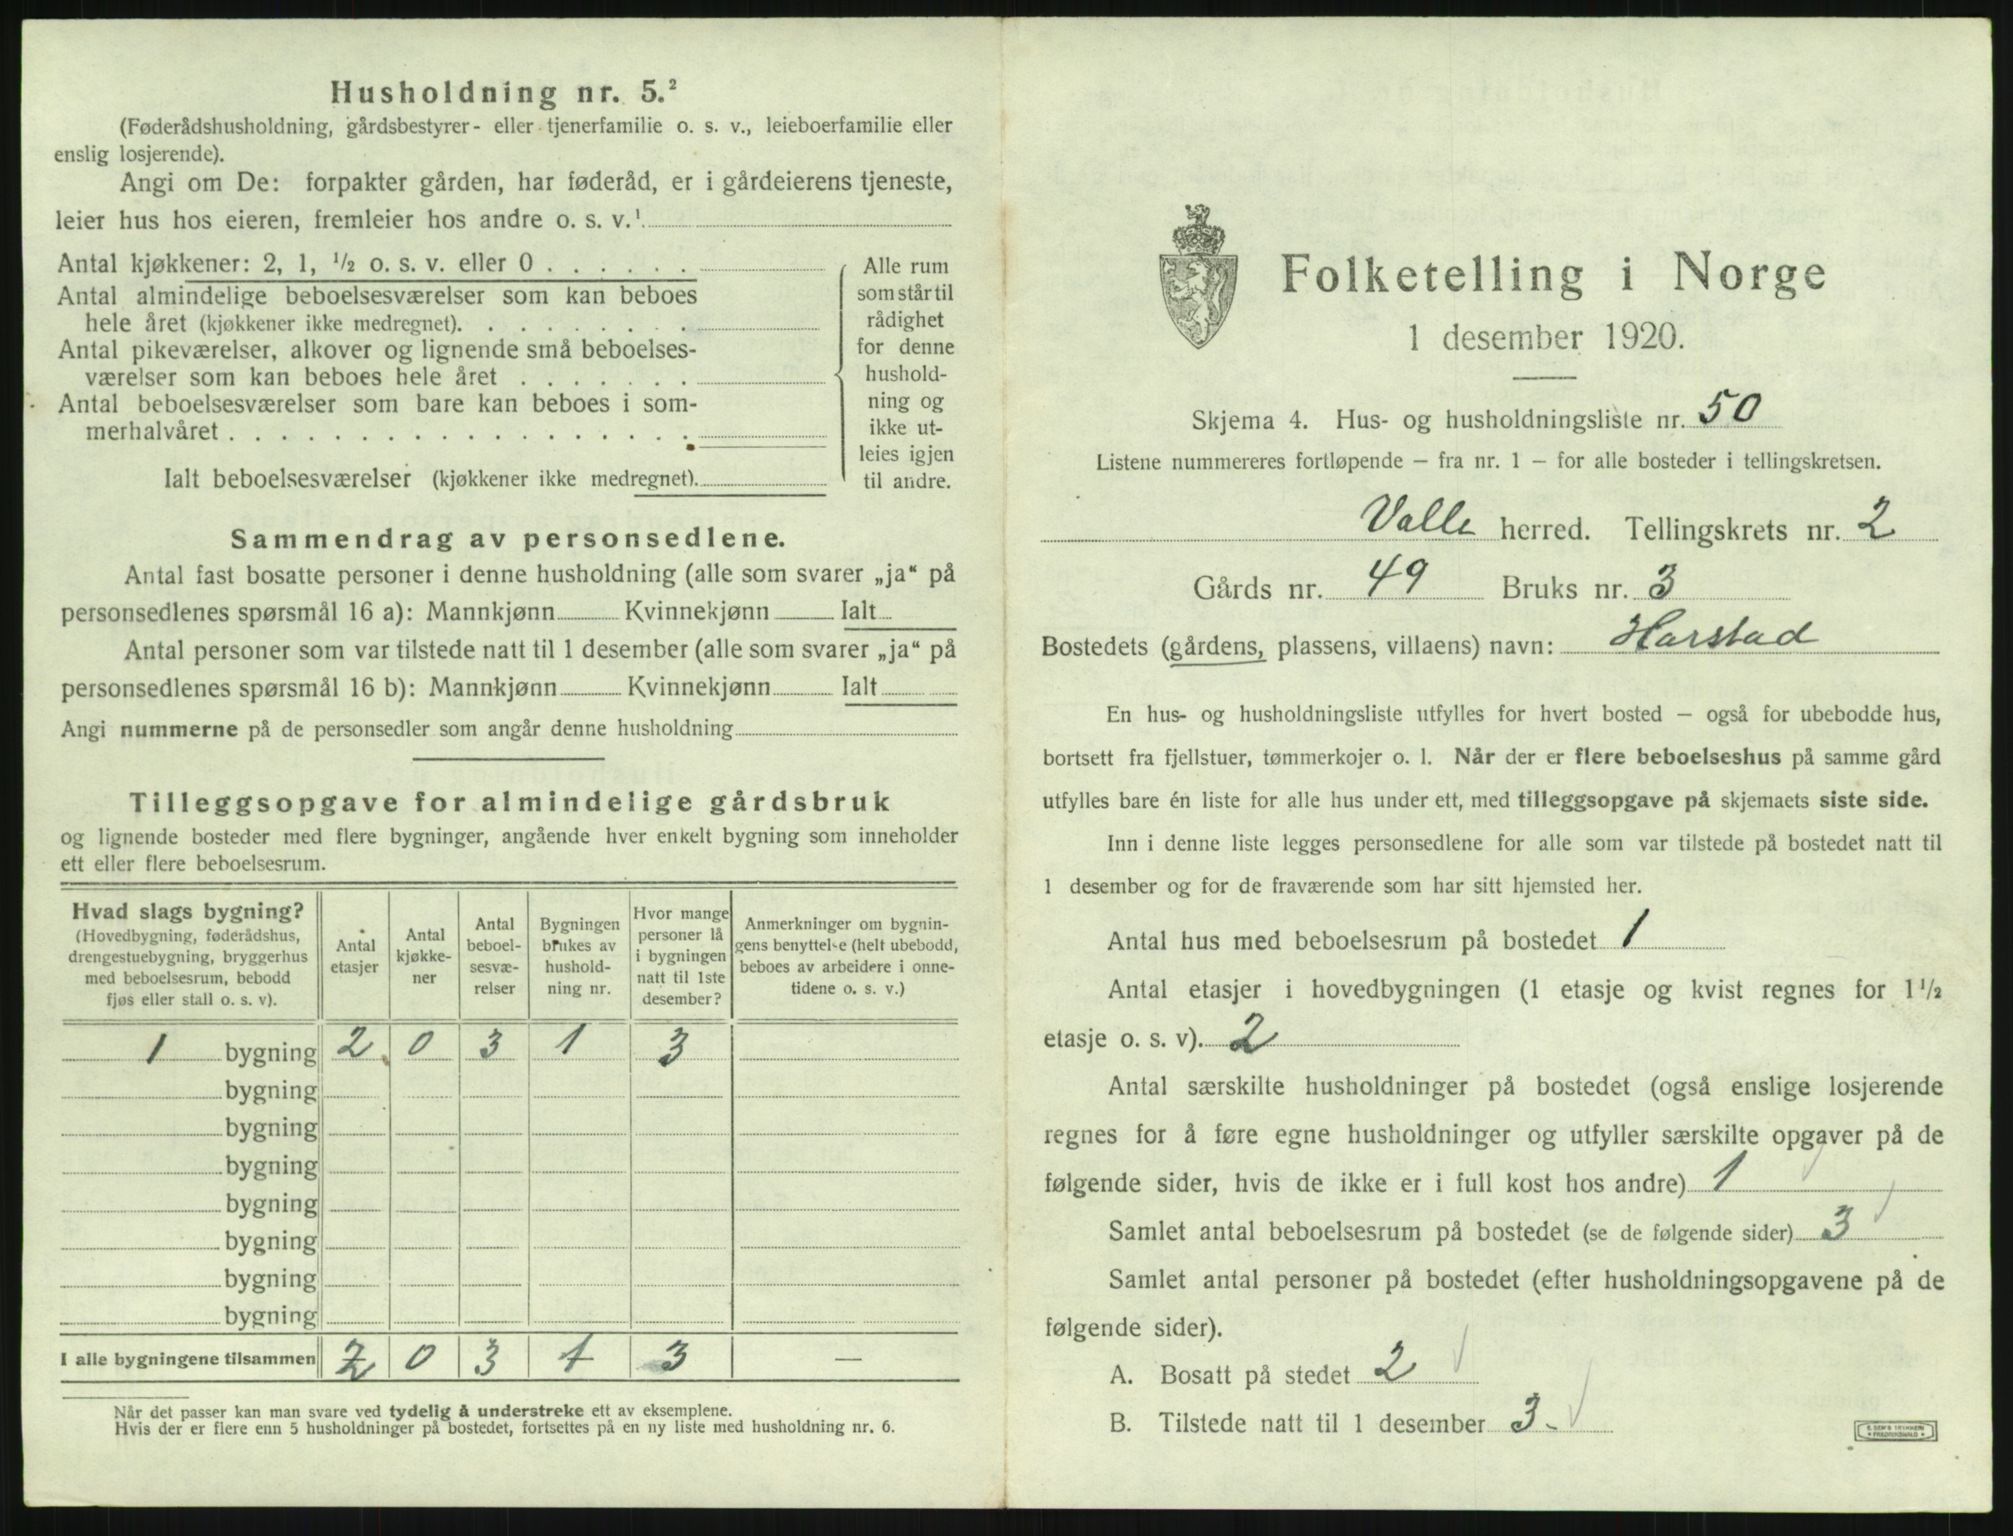 Husholdning nr. 5.²
(Føderådshusholdning, gårdsbestyrer- eller tjenerfamilie o. s. v., leieboerfamilie eller
enslig losjerende).
Angi om De: forpakter gården, har føderåd, er i gårdeierens tjeneste,
leier hus hos eieren, fremleier hos andre o. s. v.¹
Antal kjøkkener: 2, 1, ½ o. s. v. eller 0 . . . . . .
Antal almindelige beboelsesværelser som kan beboes
hele året (kjøkkener ikke medregnet). . . . . . . . .
Antal pikeværelser, alkover og lignende små beboelses-
værelser som kan beboes hele året . . . . . . .
Antal beboelsesværelser som bare kan beboes i som-
merhalvåret . . . . . . . . . . . . . . . . . .
Ialt beboelsesværelser (kjøkkener ikke medregnet).
Alle rum
som står til
rådighet
for denne
hushold-
ning og
ikke ut-
leies igjen
til andre.
Sammendrag av personsedlene.
Antal fast bosatte personer i denne husholdning (alle som svarer „ja“ på
personsedlenes spørsmål 16 a): Mannkjønn Kvinnekjønn Ialt
Antal personer som var tilstede natt til 1 desember (alle som svarer „ja“ på
personsedlenes spørsmål 16 b): Mannkjønn Kvinnekjønn Ialt
Angi nummerne på de personsedler som angår denne husholdning
Tilleggsopgave for almindelige gårdsbruk
og lignende bosteder med flere bygninger, angående hver enkelt bygning som inneholder
ett eller flere beboelsesrum.
Hvad slags bygning?
(Hovedbygning, føderådshus,
drengestuebygning, bryggerhus
med beboelsesrum, bebodd
fjøs eller stall o. s. v).
Antal
etasjer
Antal
kjøkke-
ner
Antal
beboel-
sesvæ-
relser
Bygningen
brukes av
hushold-
ning nr.
Hvor mange
personer lå
i bygningen
natt til 1ste
desember?
Anmerkninger om bygnin-
gens benyttelse (helt ubebodd,
beboes av arbeidere i onne-
tidene o. s. v.)
1 bygning 2 0 3 1 3
bygning
bygning
bygning
bygning
bygning
bygning
bygning
I alle bygningene tilsammen 2 0 3 1 3 —
Når det passer kan man svare ved tydelig å understreke ett av eksemplene.
Hvis der er flere enn 5 husholdninger på bostedet, fortsettes på en ny liste med husholdning nr. 6.
Folketelling i Norge
1 desember 1920.
Skjema 4. Hus- og husholdningsliste nr. 50
Listene nummereres fortløpende — fra nr. 1 — for alle bosteder i tellingskretsen.
Valle herred. Tellingskrets nr. 2
Gårds nr. 49 Bruks nr. 3
Bostedets (gårdens, plassens, villaens) navn: Harstad
En hus- og husholdningsliste utfylles for hvert bosted — også for ubebodde hus,
bortsett fra fjellstuer, tømmerkojer o. l. Når der er flere beboelseshus på samme gård
utfylles bare én liste for alle hus under ett, med tilleggsopgave på skjemaets siste side.
Inn i denne liste legges personsedlene for alle som var tilstede på bostedet natt til
1 desember og for de fraværende som har sitt hjemsted her.
Antal hus med beboelsesrum på bostedet 1
Antal etasjer i hovedbygningen (1 etasje og kvist regnes for 1½
etasje o. s. v). 2
Antal særskilte husholdninger på bostedet (også enslige losjerende
regnes for å føre egne husholdninger og utfyller særskilte opgaver på de
følgende sider, hvis de ikke er i full kost hos andre) 1
Samlet antal beboelsesrum på bostedet (se de følgende sider) 3
Samlet antal personer på bostedet (efter husholdningsopgavene på de
følgende sider).
A. Bosatt på stedet 2
B. Tilstede natt til 1 desember 3-